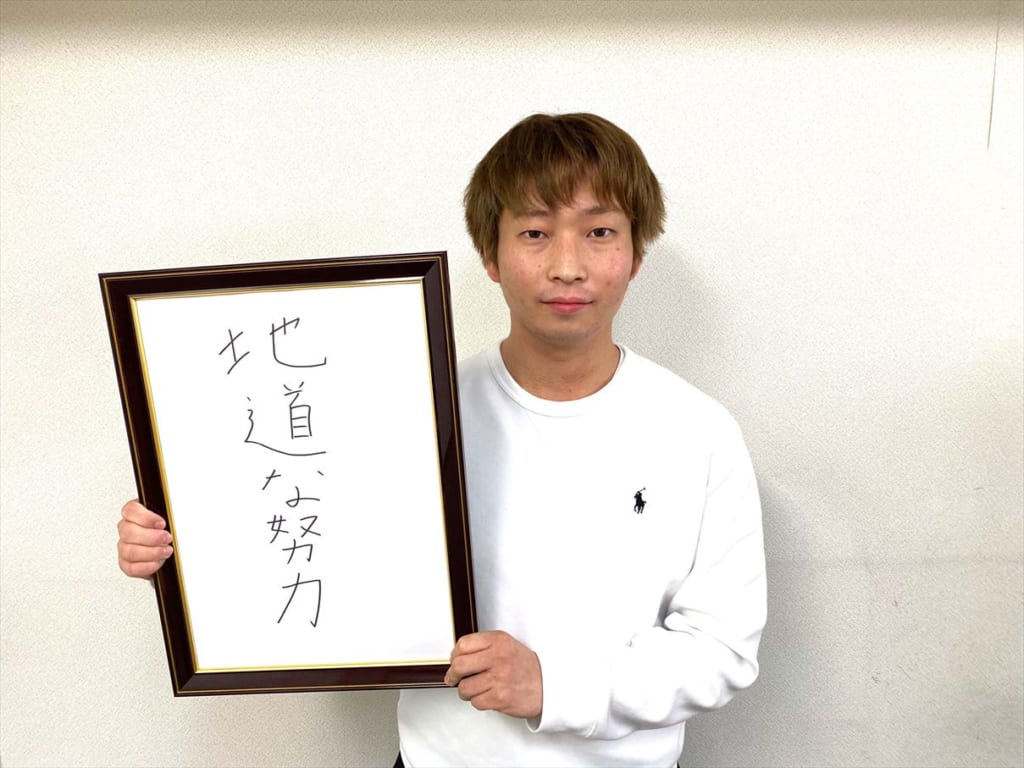 地道な努力